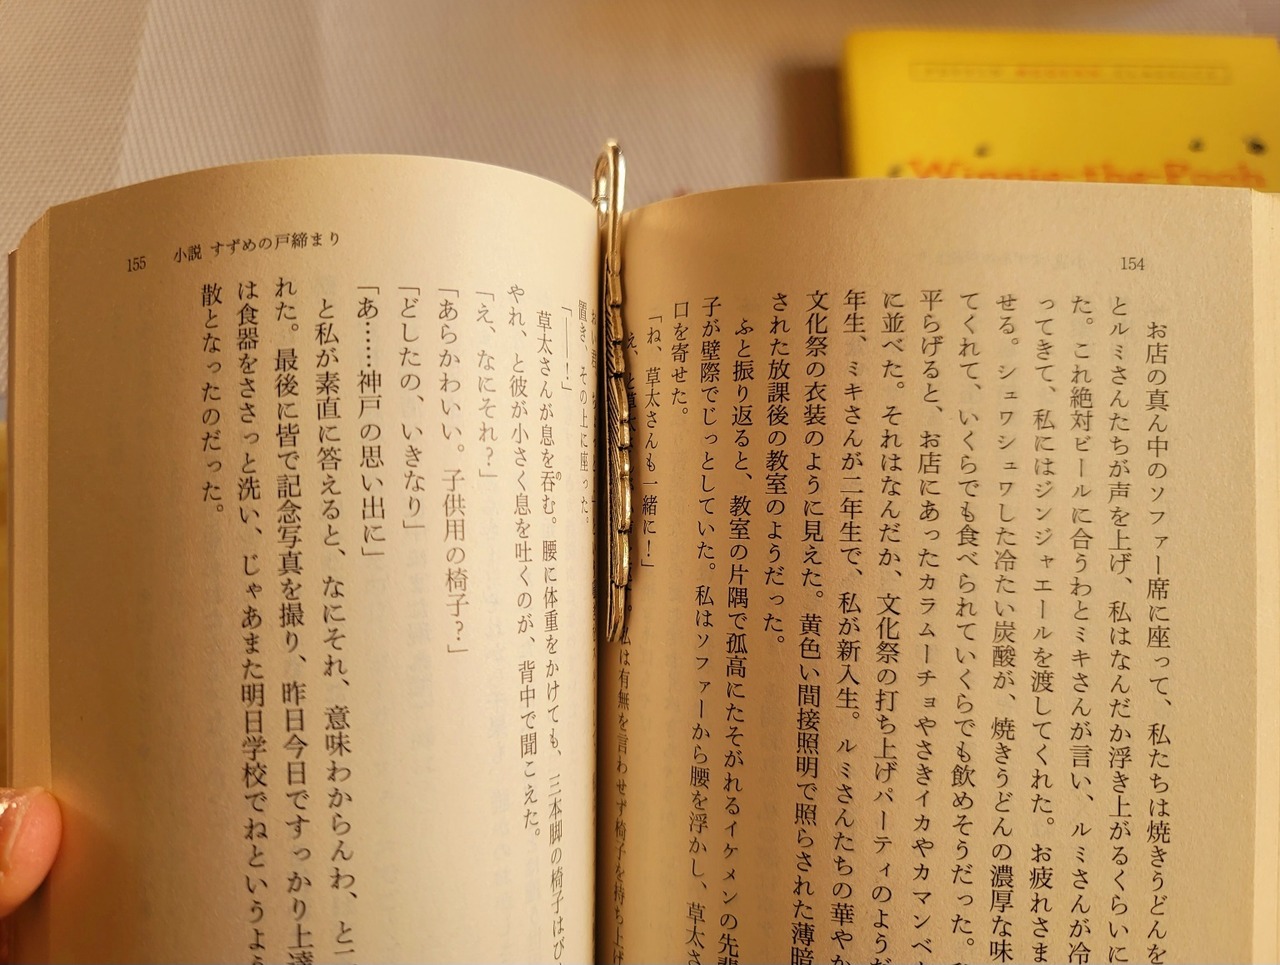 154
お店の真ん中のソファー席に座って、私たちは焼きうどんを
とルミさんたちが声を上げ、私はなんだか浮き上がるくらいに
た。これ絶対ビールに合うわとミキさんが言い、ルミさんが冷
ってきて、私にはジンジャエールを渡してくれた。お疲れさま
せる。シュワシュワした冷たい炭酸が、焼きうどんの濃厚な味
てくれて、いくらでも食べられていくらでも飲めそうだった。
平らげると、お店にあったカラムーチョやさきイカやカマンベ
に並べた。それはなんだか、文化祭の打ち上げパーティのようだ
年生、ミキさんが二年生で、私が新入生。ルミさんたちの華やか
文化祭の衣装のように見えた。黄色い間接照明で照らされた薄暗
された放課後の教室のようだった。
ふと振り返ると、教室の片隅で孤高にたそがれるイケメンの先輩
子が壁際でじっとしていた。私はソファーから腰を浮かし、草太さ
口を寄せた。
「ね、草太さんも一緒に！」
私は有無を言わせず椅子を持ち上げ
155 小説 すずめの戸締まり
置き、その上に座った。
「——！」
草太さんが息を呑む。腰に体重をかけても、三本脚の椅子はび
やれ、と彼が小さく息を吐くのが、背中で聞こえた。
「え、なにそれ？」
「あらかわいい。子供用の椅子？」
「どしたの、いきなり」
「あ……神戸の思い出に」
と私が素直に答えると、なにそれ、意味わからんわ、と
れた。最後に皆で記念写真を撮り、昨日今日ですっかり上達
は食器をささっと洗い、じゃあまた明日学校でねというよう
散となったのだった。
Winnie-the-Pooh